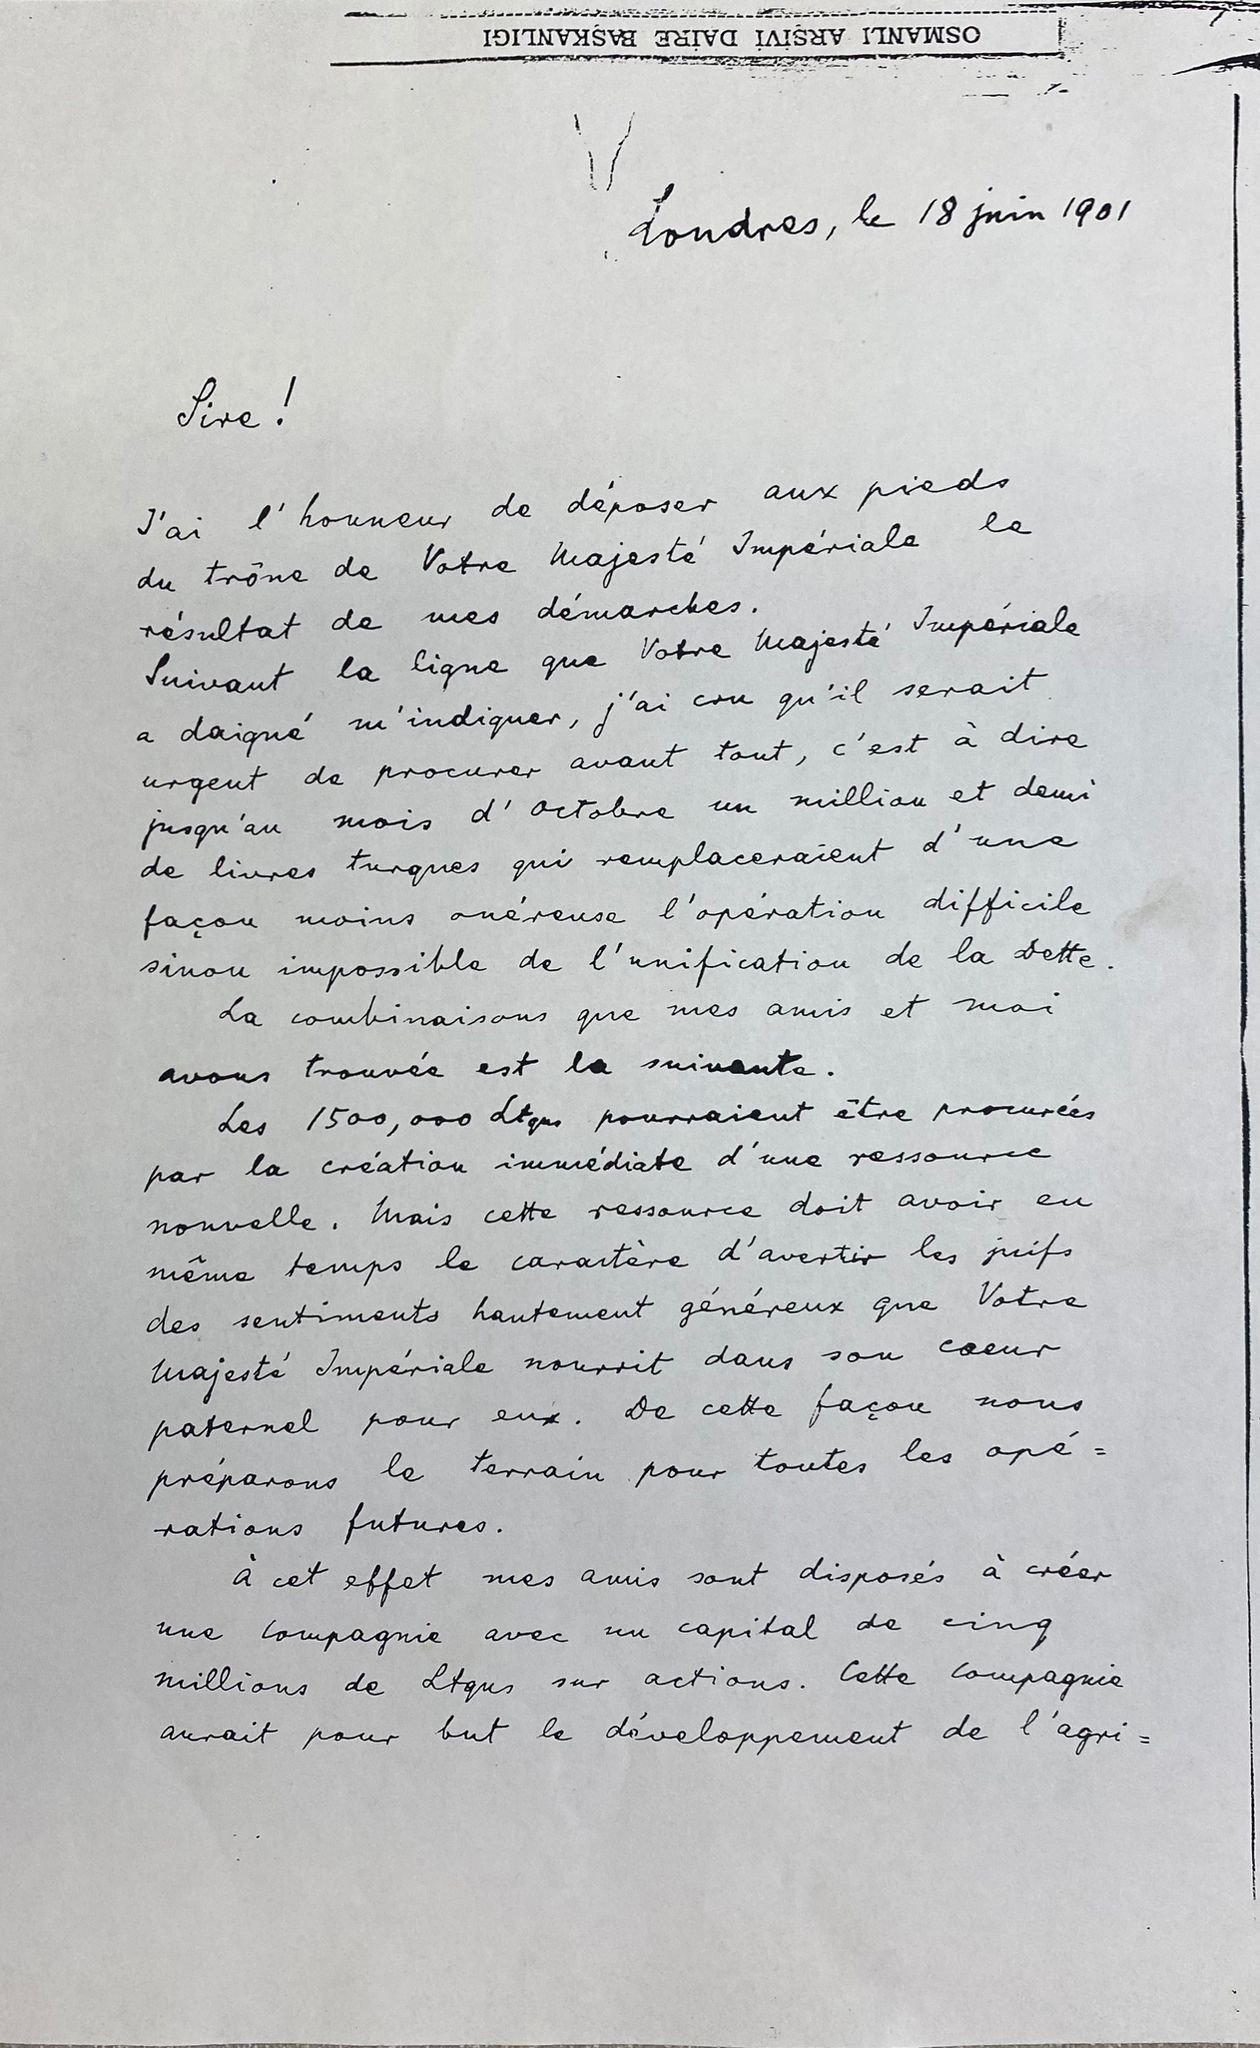 OSMANLI ARŞİVİ DAİRE BAŞKANLIGI
Londres, le 18 juin 1901
Sire !
J'ai l'honneur de déposer aux pieds
du trône de Votre Majesté Impériale le
résultat de mes démarches.
Suivant la ligne que Votre Majesté Impériale
a daigné m'indiquer, j'ai cru qu'il serait
urgent de procurer avant tout, c'est à dire
jusqu'au mois d'octobre un million et demi
de livres turques qui remplaceraient d'une
façon moins onéreuse l'opération difficile
sinon impossible de l'unification de la Dette.
La combinaisons que mes amis et moi
avons trouvée est la suivante.
Les 1500,000 Ltqus pourraient être procurées
par la création immédiate d'une ressource
nouvelle. Mais cette ressource doit avoir en
même temps le caractère d'avertir les juifs
des sentiments hautement généreux que Votre
Majesté Impériale nourrit dans son coeur
paternel pour eux. De cette façon nous
préparons le terrain pour toutes les opé=
rations futures.
À cet effet mes amis sont disposés à créer
une Compagnie avec un capital de cinq
millions de Ltqus sur actions. Cette Compagnie
aurait pour but le développement de l'agri=